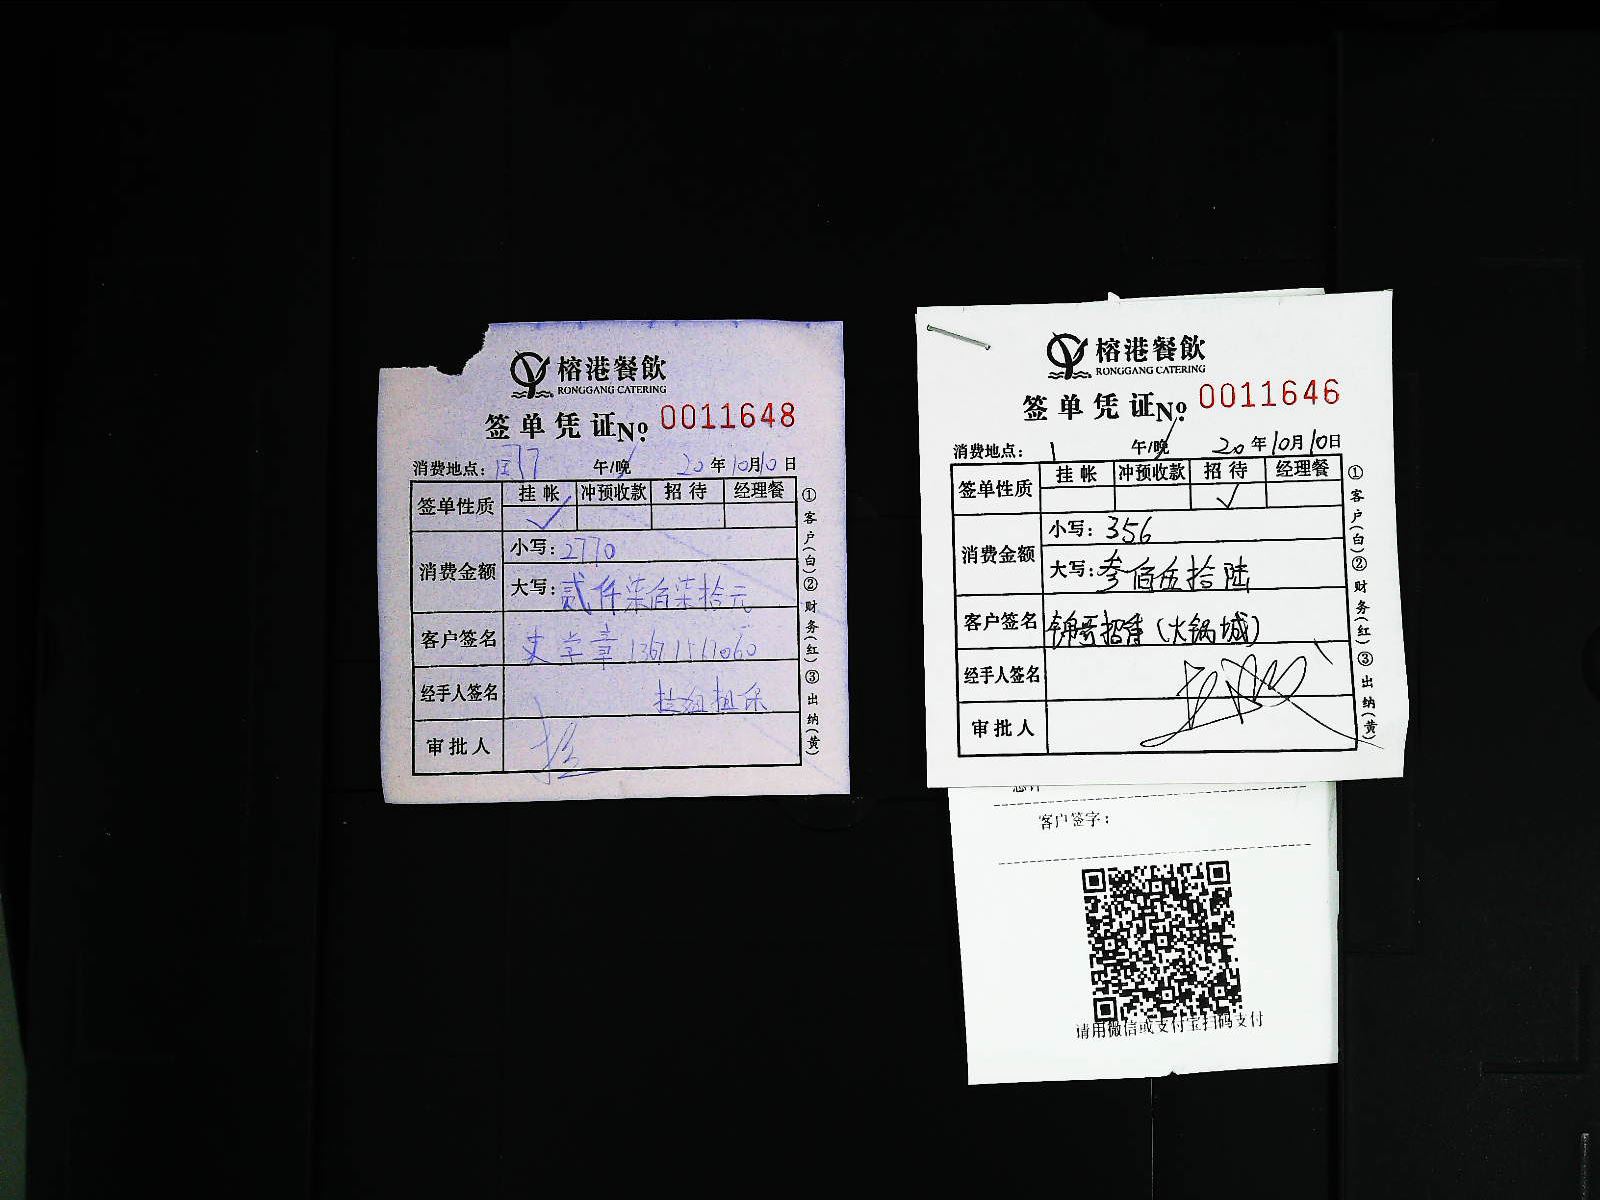 榕港餐飲
RONGGANG CATERING
签单凭证No. 0011648
消费地点: 午/晚 20年10月10日
签单性质 挂帐 冲预收款 招待 经理餐
✓
消费金额
小写: 2770
大写: 贰仟柒佰柒拾元
客户签名 史学章 13671511060
经手人签名 担保
审批人
①客户(白)②财务(红)③出纳(黄)
榕港餐飲
RONGGANG CATERING
签单凭证No. 0011646
消费地点: 午/晚 20年10月10日
签单性质 挂帐 冲预收款 招待 经理餐
✓
消费金额
小写: 356
大写: 叁佰伍拾陆
客户签名 (火锅城)
经手人签名
审批人
①客户(白)②财务(红)③出纳(黄)
总计
客户签字:
请用微信或支付宝扫码支付